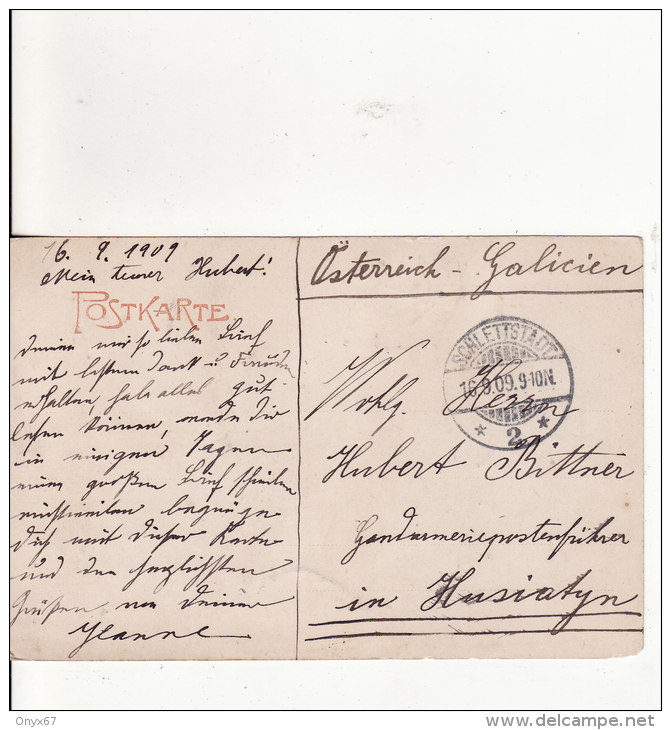 16. 9. 1909
Mein teurer Hubert!
POSTKARTE
Deinen mir so lieben Brief
mit bestem Dank u. Freude
erhalten, habe alles gut
lesen können, werde dir
in einigen Tagen
einen großen Brief schreiben
einstweilen begnüge
dich mit dieser Karte
und den herzlichsten
Grüßen von deiner
Jeanne
Österreich - Galicien
SCHLETTSTADT
16.9.09.9-10N.
* 2 *
Wohlg. Herrn
Hubert Bittner
Gendarmeriepostenführer
in Husiatyn
Onyx67
www.delcampe.net